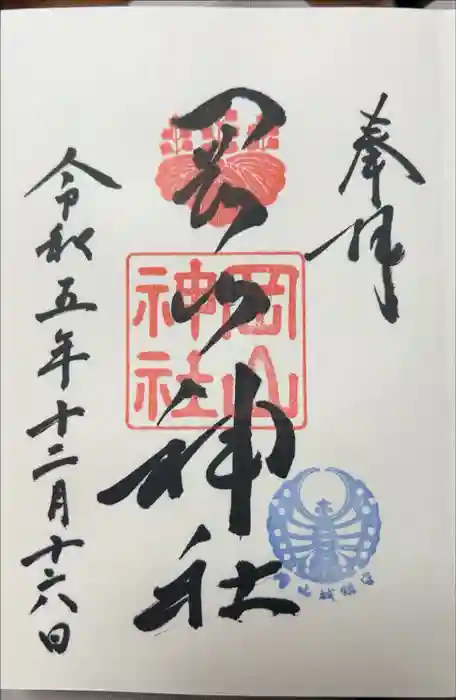 奉拝
岡山神社
岡山
神社
令和五年十二月十六日